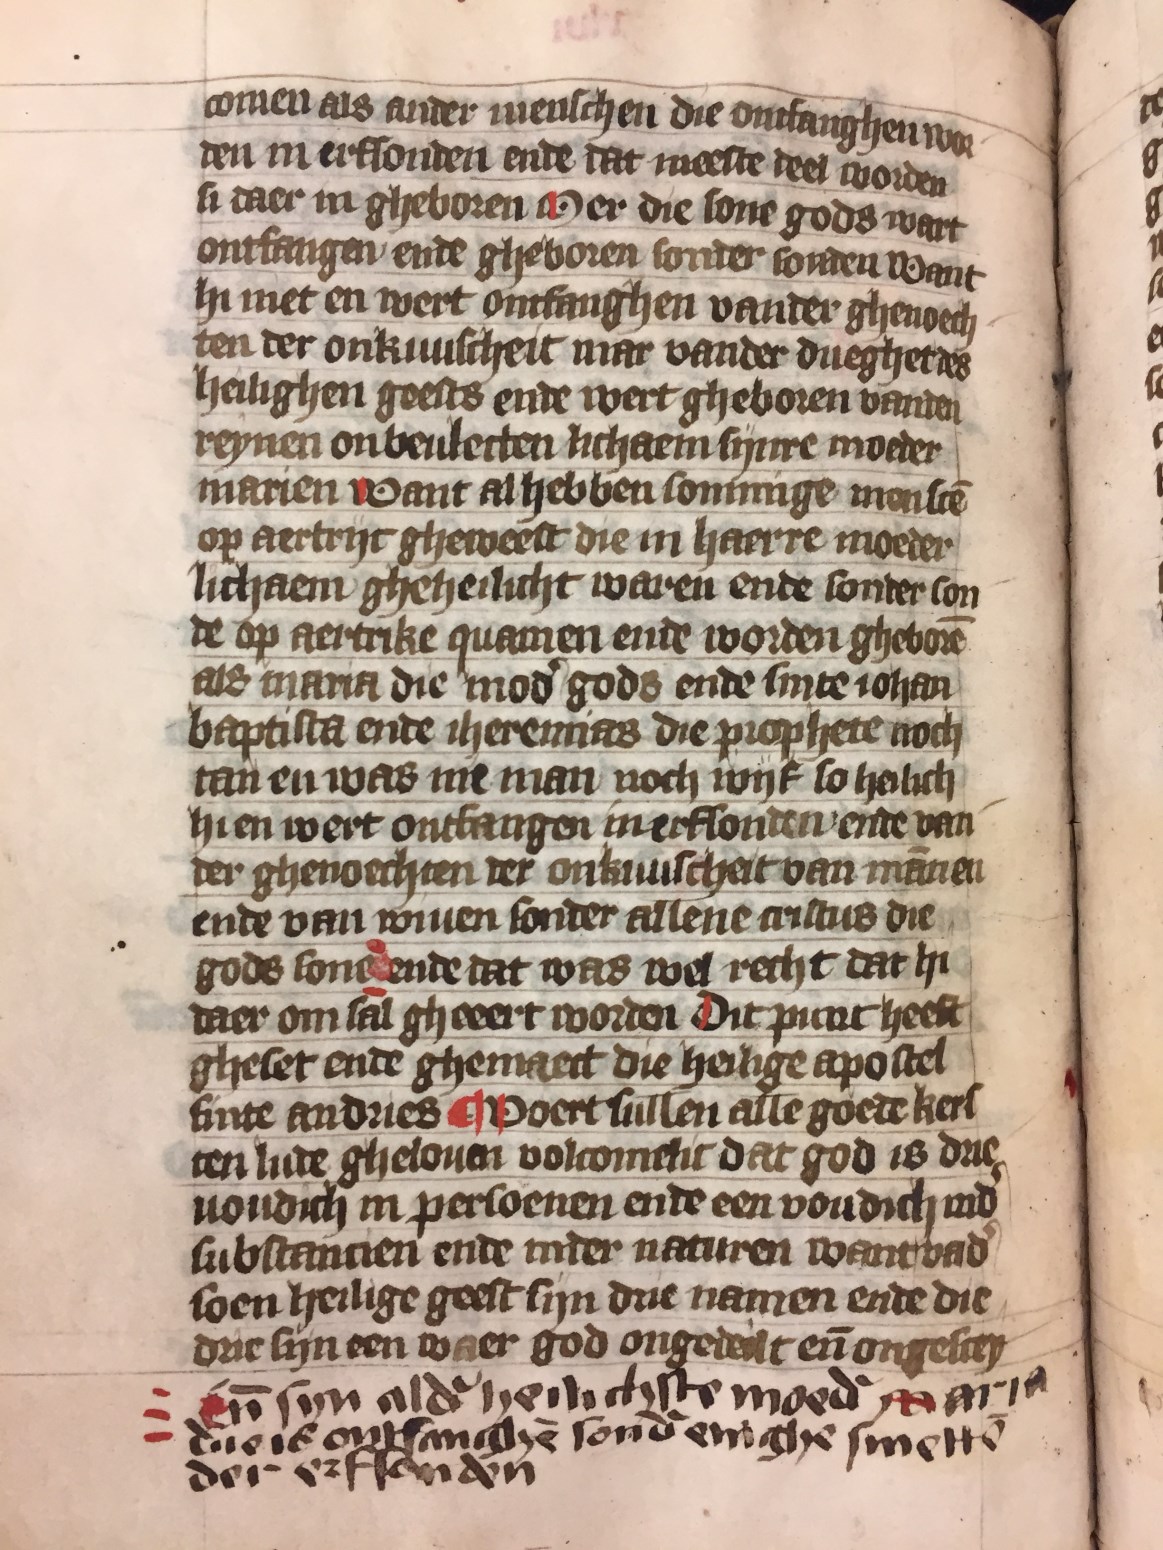 comen als ander menschen die omtfanghen wor
den in erfsonden ende dat meeste deel worden
si daer in gheboren Mer die sone gods wart
ontfangen ende gheboren sonder sonden Want
hi niet en wert omtfanghen vander ghenoech
ten der onkuuscheit mar vander dueghet des
heilighen geests ende wert gheboren vanden
reynen onbeulecten lichaem synre moeder
marien Want al hebben sommige menscē
op aertrijt gheweest die in haerre moeder
lichaem gheheilicht waren ende sonder son
de op aertrike quamen ende worden gheborē
als maria die mod' gods ende sinte iohan
baptista ende iheremias die prophete noch
tan en was nie man noch wijf so heilich
hi en wert ontfangen in erfsonden ende van
der ghenoechten der onkuuscheit van mānen
ende van wiuen sonder allene cristus die
gods sone ende dat was wel recht dat hi
daer om sal gheeert worden Dit punt heeft
gheset ende ghemaect die heilige apostel
sinte andries ¶ Voert sullen alle goede kers
ten lude ghelouen volcomelic dat god is drie
uoudich in persoenen ende een voudich ind'
substancien ende inder naturen want vad'
soen heilige geest sijn drie namen ende die
drie sijn een waer god ongedeilt eñ ongescey
Eñ syn ald' heilichste moed' maria
die is ontfanghē sond' enighe smettē
der erfsonden